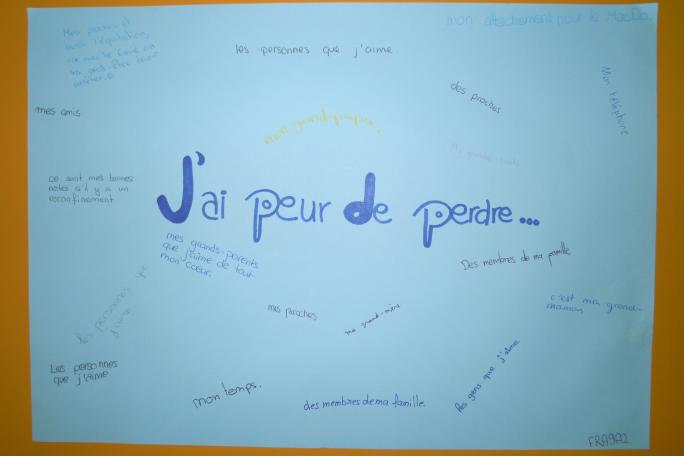 Mes proches et
aussi l'équitation,
car avec le Covid on
va peut-être devoir
arrêter.
mon attachement pour le MacDo.
les personnes que j'aime.
Mon téléphone
des proches
mes amis
mon grand-papa.
Ma grande-tante
ce sont mes bonnes
notes s'il y a un
reconfinement
J'ai peur de perdre...
mes grands-parents
que j'aime de tout
mon coeur.
Des membres de ma famille
les personnes que
j'aime.
c'est ma grand-
maman
mes proches
ma grand-mère
Les personnes
que j'aime
les gens que j'aime.
mon temps.
des membres de ma famille.
FRA9A2